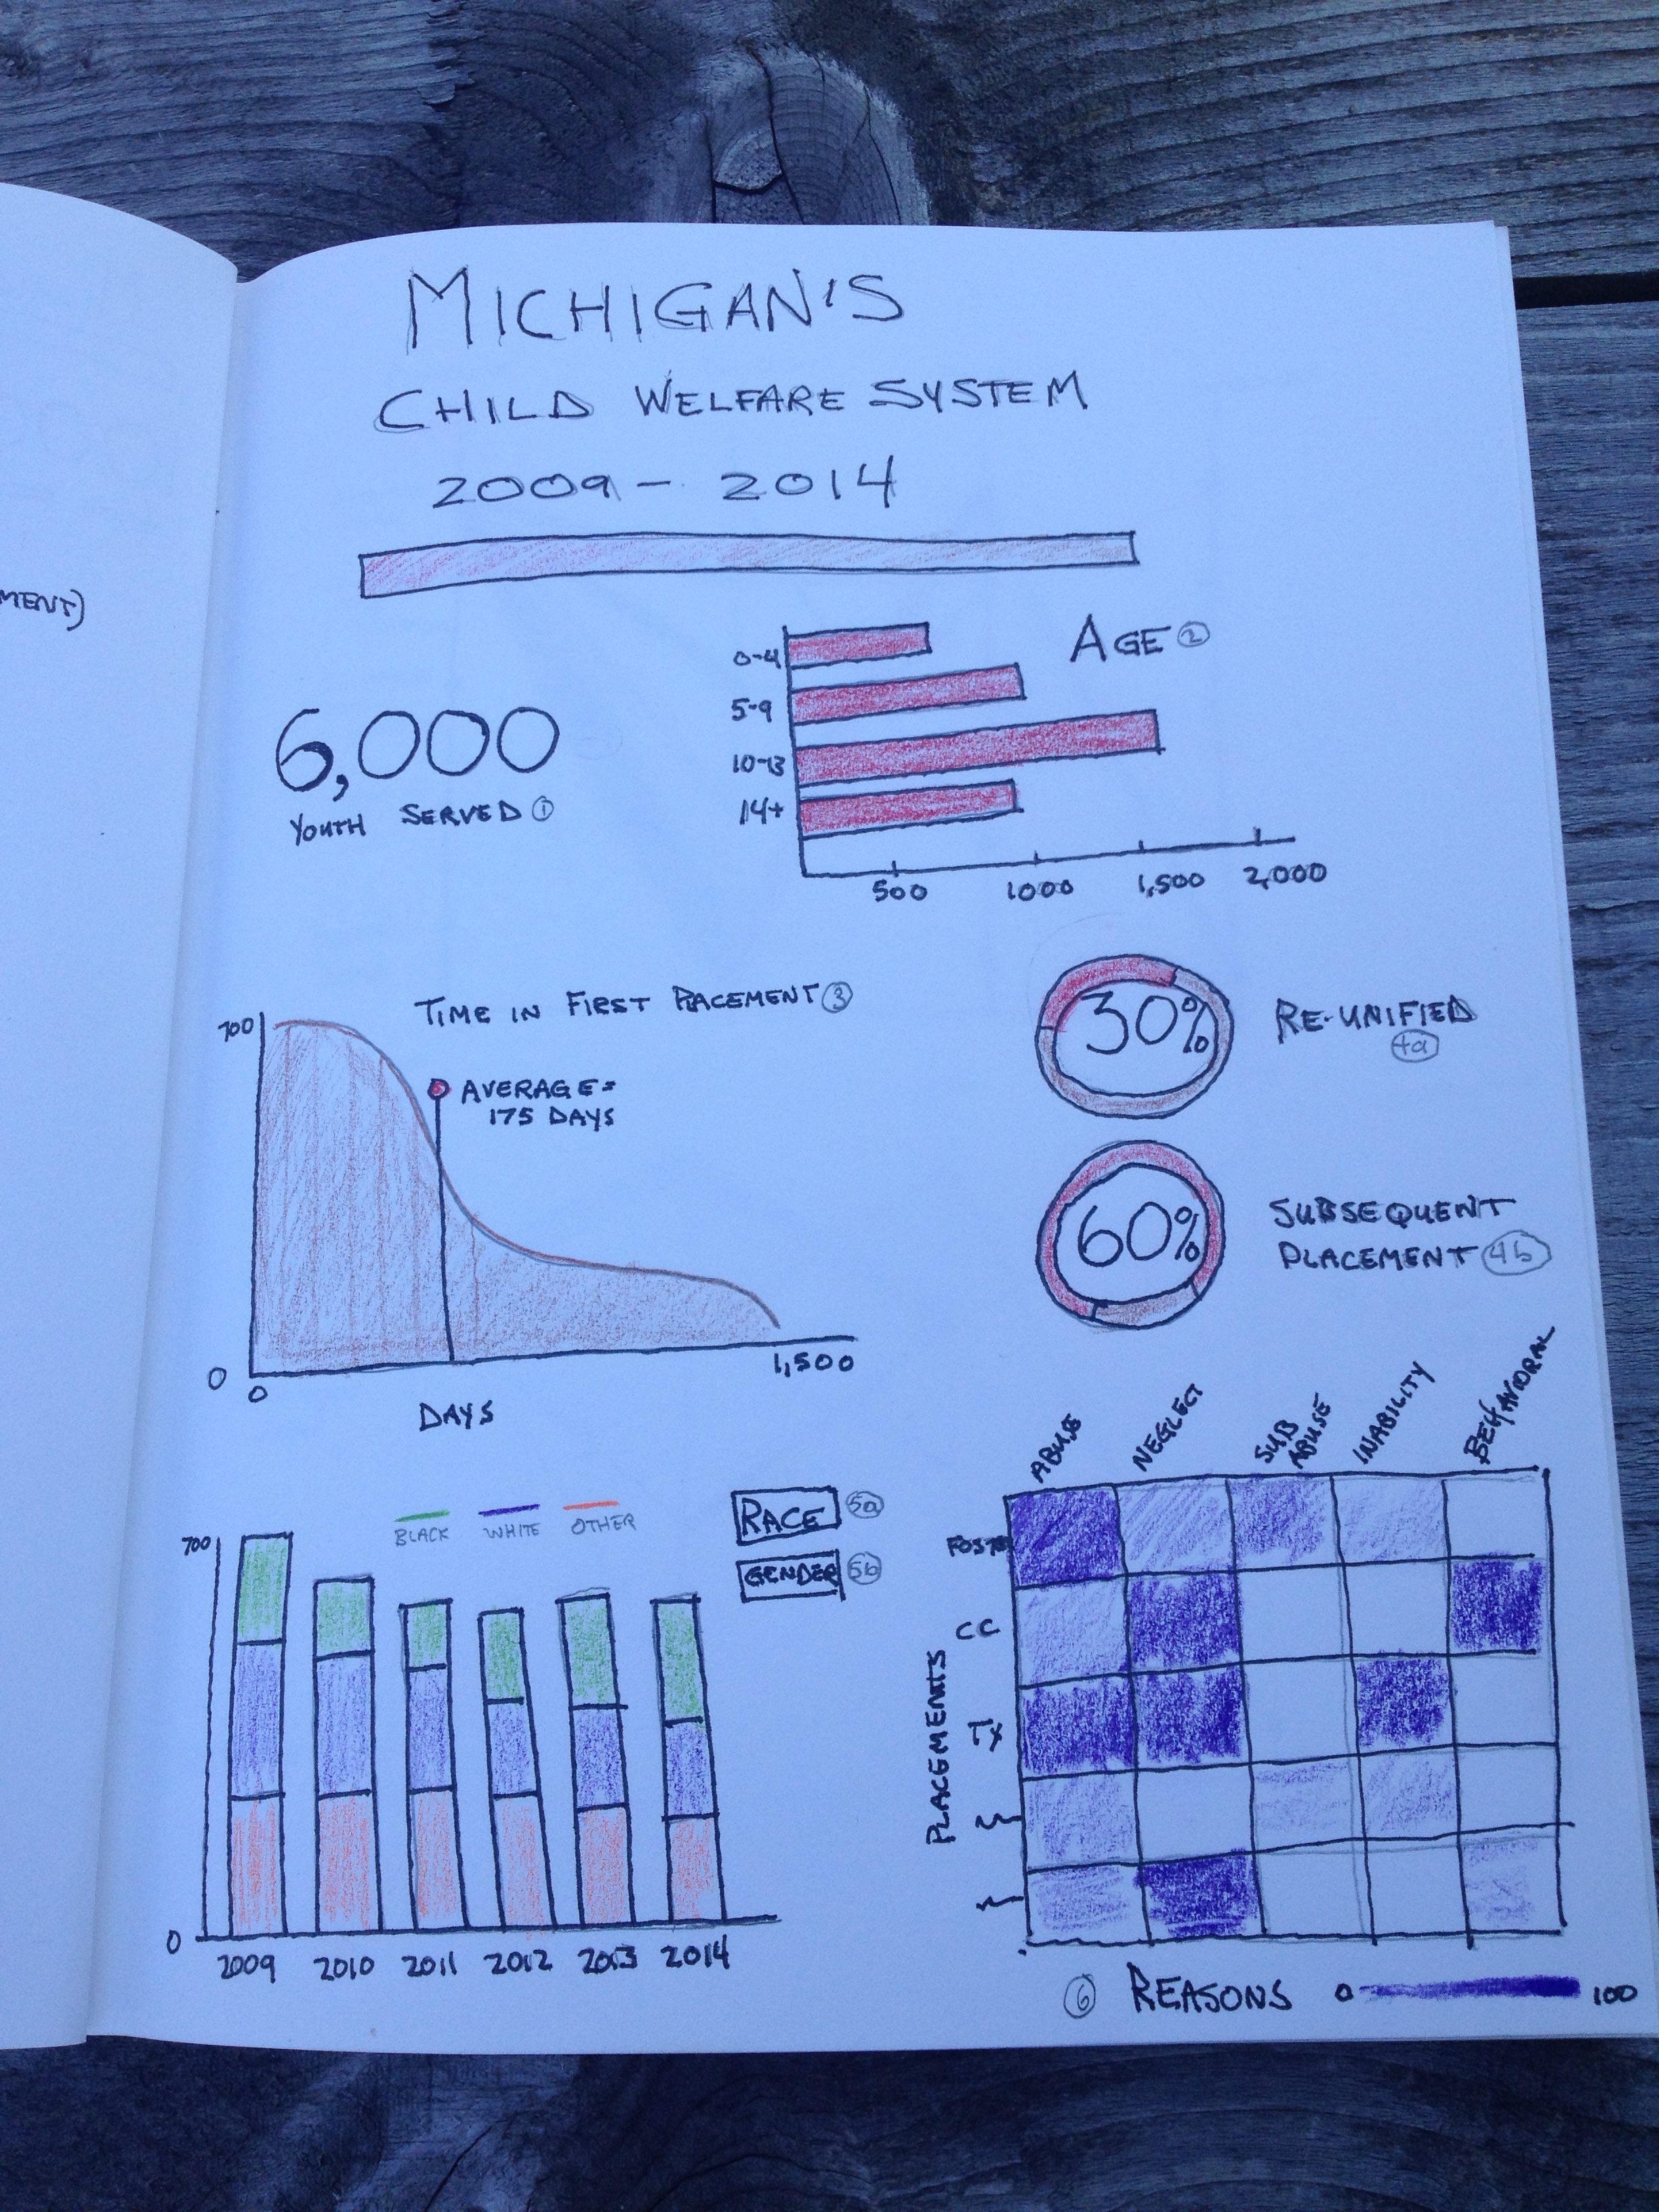 MENT)
MICHIGAN'S
CHILD WELFARE SYSTEM
2009 - 2014
6,000
YOUTH SERVED ①
AGE ②
0-4
5-9
10-13
14+
500 1000 1,500 2,000
TIME IN FIRST PLACEMENT ③
700
AVERAGE=
175 DAYS
0
0 1,500
DAYS
30%
RE-UNIFIED
4a
60%
SUBSEQUENT
PLACEMENT 4b
BLACK WHITE OTHER
RACE 5a
GENDER 5b
700
0
2009 2010 2011 2012 2013 2014
ABUSE NEGLECT SUB ABUSE INABILITY BEHAVIORAL
PLACEMENTS
FOSTER
CC
Tx
⑥ REASONS 0 100